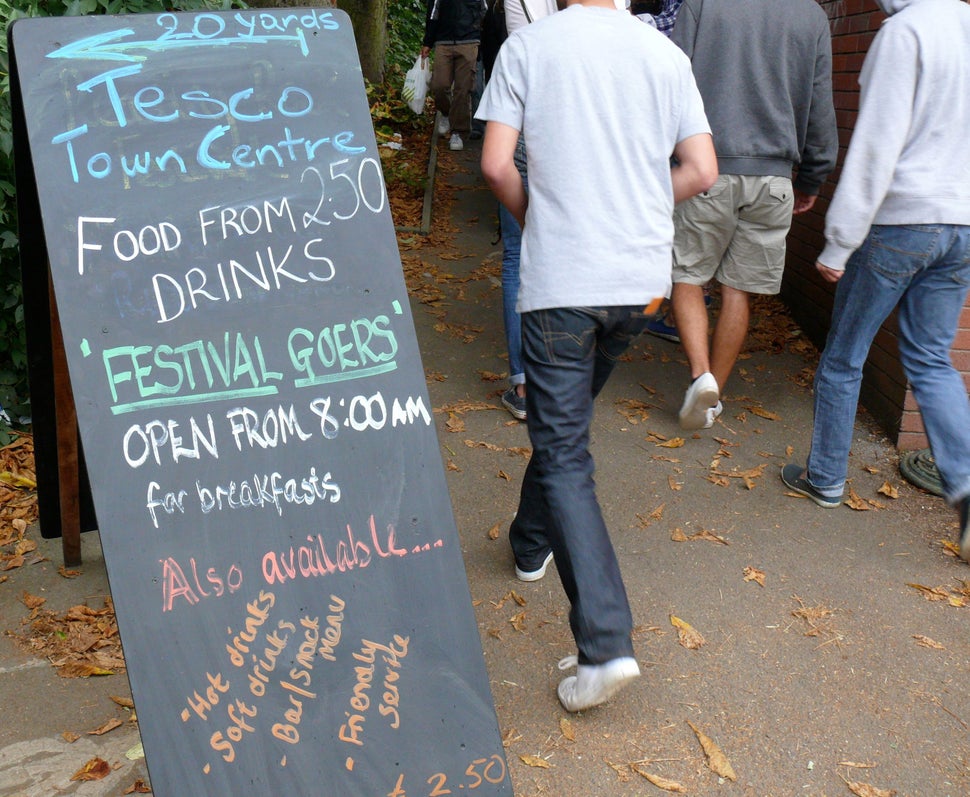 20 yards
Tesco
Town Centre
FOOD FROM 2.50
DRINKS
'FESTIVAL GOERS'
OPEN FROM 8:00 AM
for breakfasts
Also available...
- Hot drinks
- Soft drinks
- Bar/snack menu
- Friendly service
2.50